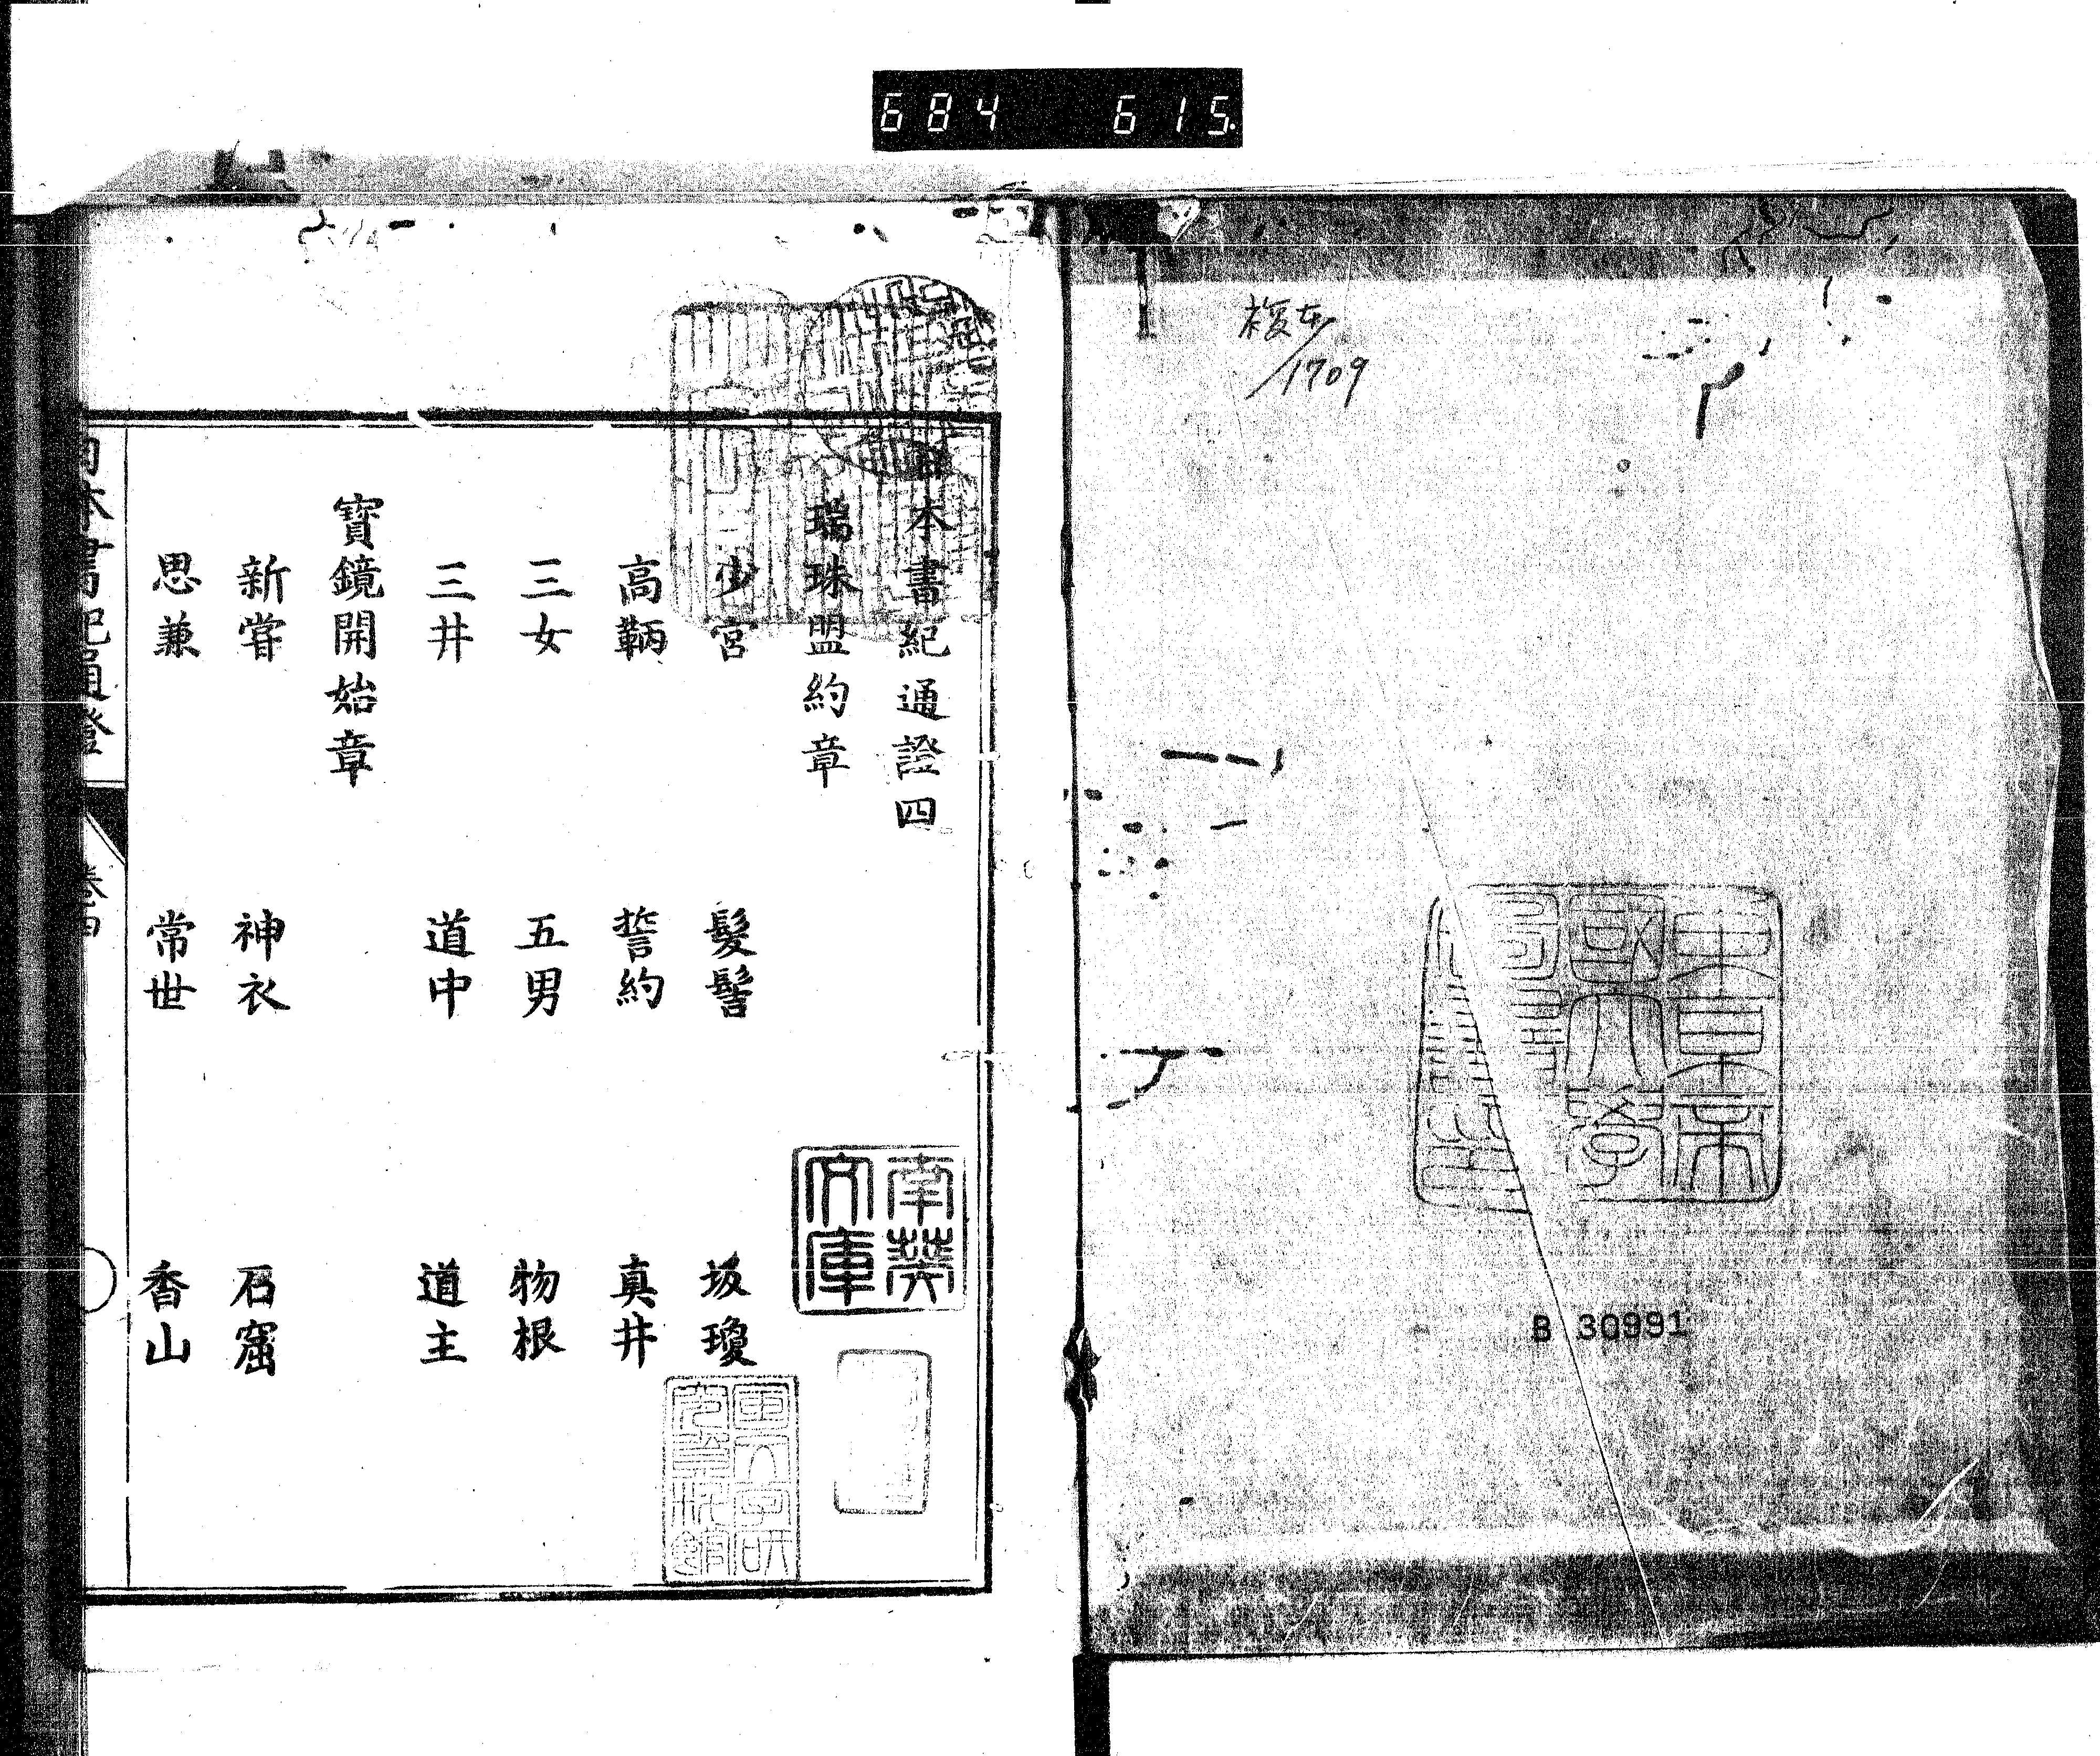 684 615
複本
1709
東京帝
國大學
B 30991
日本書紀通證四
瑞珠盟約章
少宮 髮髻 坂瓊
高鞆 誓約 真井
三女 五男 物根
三井 道中 道主
寶鏡開始章
新嘗 神衣 石窟
思兼 常世 香山
南葵
文庫
日本書紀通證 卷四